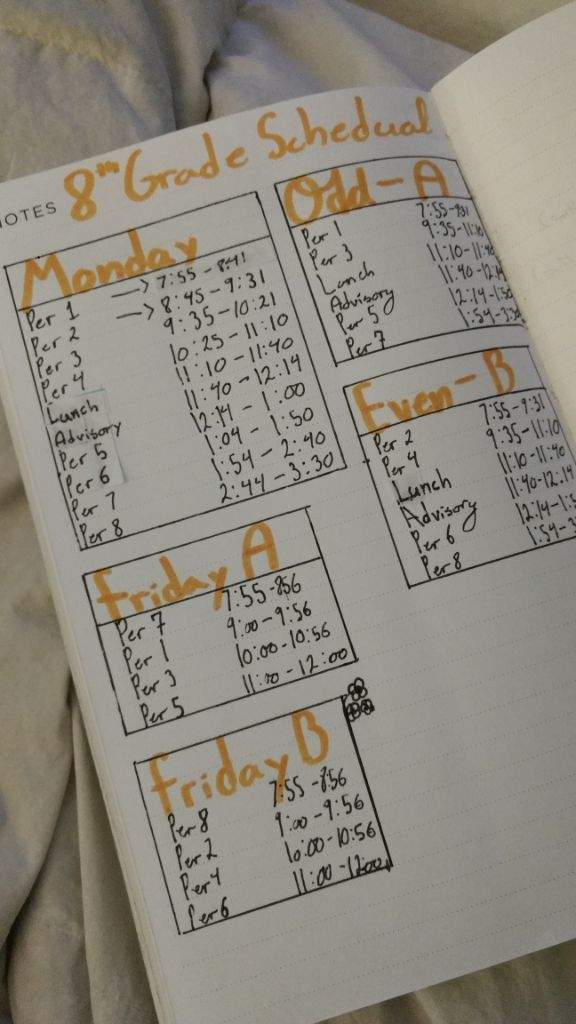 NOTES
8th Grade Schedual
Monday
Per 1 → 7:55 - 8:41
Per 2 → 8:45 - 9:31
Per 3 9:35 - 10:21
Per 4 10:25 - 11:10
Lunch 11:10 - 11:40
Advisory 11:40 - 12:14
Per 5 12:14 - 1:00
Per 6 1:04 - 1:50
Per 7 1:54 - 2:40
Per 8 2:44 - 3:30
Odd - A
Per 1 7:55 - 9:31
Per 3 9:35 - 11:10
Lunch 11:10 - 11:40
Advisory 11:40 - 12:14
Per 5 12:14 - 1:50
Per 7 1:54 - 3:30
Even - B
Per 2 7:55 - 9:31
Per 4 9:35 - 11:10
Lunch 11:10 - 11:40
Advisory 11:40 - 12:14
Per 6 12:14 - 1:5
Per 8 1:54 - 3
Friday A
Per 7 7:55 - 8:56
Per 1 9:00 - 9:56
Per 3 10:00 - 10:56
Per 5 11:00 - 12:00
Friday B
Per 8 7:55 - 8:56
Per 2 9:00 - 9:56
Per 4 10:00 - 10:56
Per 6 11:00 - 12:00